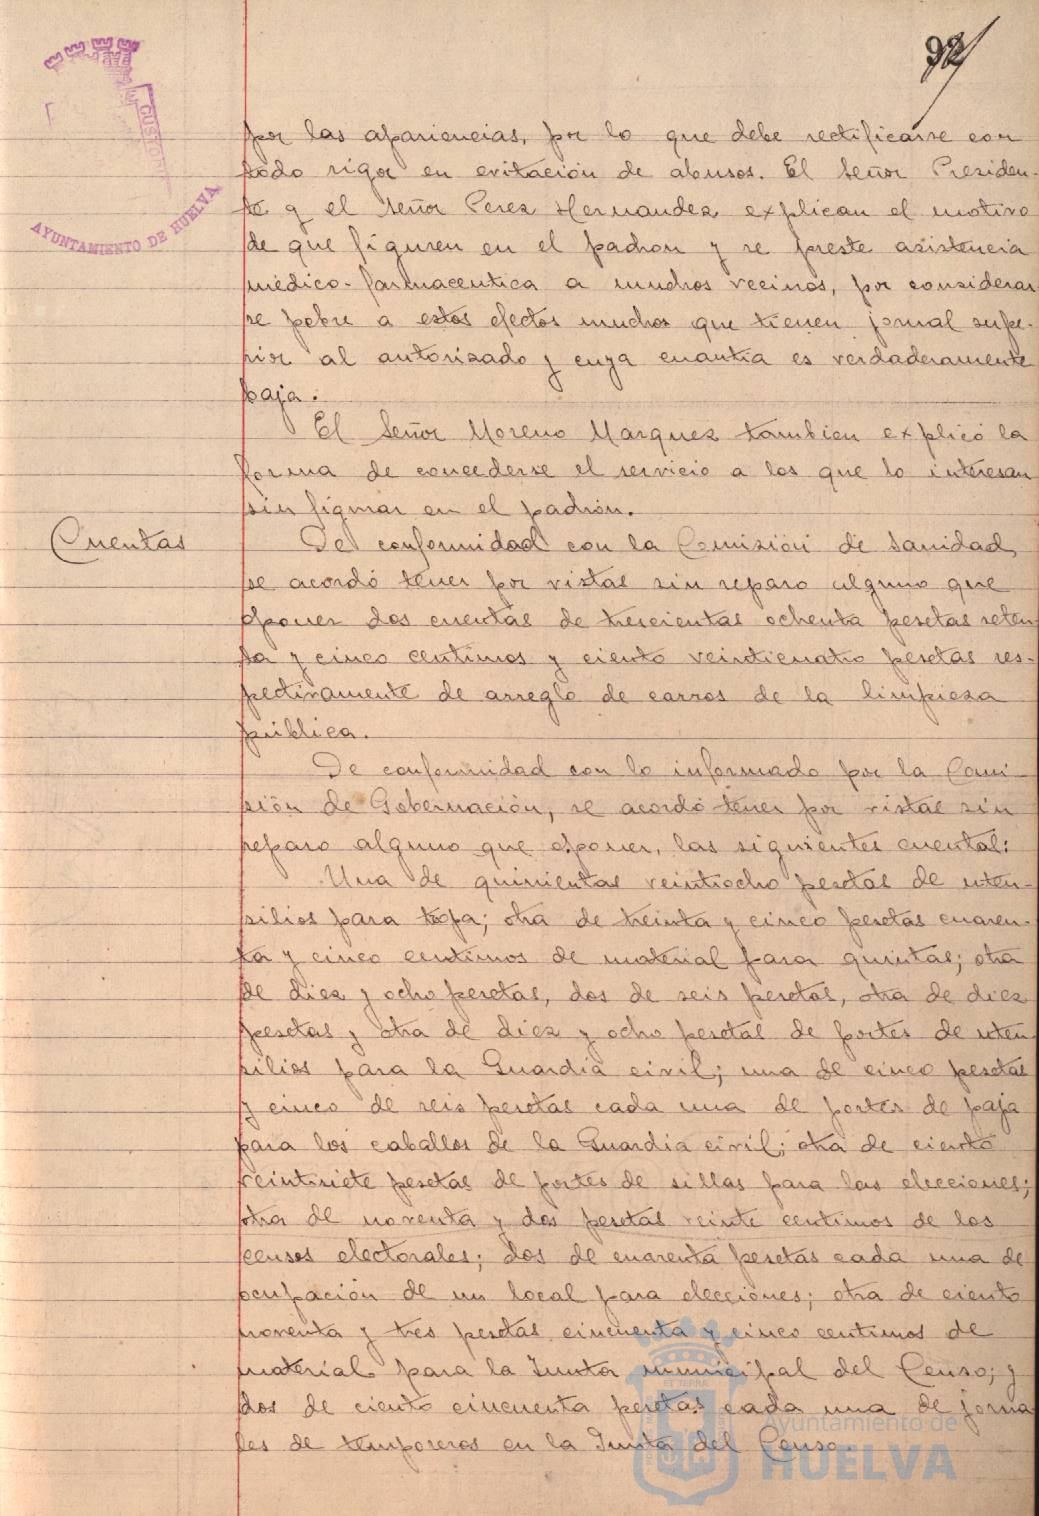 92
AYUNTAMIENTO DE HUELVA
por las apariencias, por lo que debe rectificarse con
todo rigor en evitación de abusos. El Señor Presiden-
te y el Señor Perez Hernandez explican el motivo
de que figuren en el padron y se preste asistencia
médico-farmaceutica a muchos vecinos, por considerar
se pobre a estos efectos muchos que tienen jornal supe-
rior al autorizado y cuya cuantía es verdaderamente
baja.
El Señor Moreno Marquez tambien explicó la
forma de concederse el servicio a los que lo interesan
sin figurar en el padrón.
Cuentas
De conformidad con la Comisión de Sanidad,
se acordó tener por vistas sin reparo alguno que
oponer dos cuentas de trescientas ochenta pesetas seten
ta y cinco centimos y ciento veinticuatro pesetas res-
pectivamente de arreglo de carros de la limpieza
pública.
De conformidad con lo informado por la Comi-
sión de Gobernación, se acordó tener por vistas sin
reparo alguno que oponer, las siguientes cuentas:
Una de quinientas veintiocho pesetas de uten-
silios para tropa; otra de treinta y cinco pesetas cuaren-
ta y cinco centimos de material para quintas; otra
de diez y ocho pesetas, dos de seis pesetas, otra de diez
pesetas y otra de diez y ocho pesetas de portes de uten
silios para la Guardia civil; una de cinco pesetas
y cinco de seis pesetas cada una de portes de paja
para los caballos de la Guardia civil; otra de ciento
veintisiete pesetas de portes de sillas para las elecciones;
otra de noventa y dos pesetas veinte centimos de los
censos electorales; dos de cuarenta pesetas cada una de
ocupación de un local para elecciones; otra de ciento
noventa y tres pesetas cincuenta y cinco centimos de
material para la Junta municipal del Censo; y
dos de ciento cincuenta pesetas cada una de jorna
les de temporeros en la Junta del Censo.
Ayuntamiento de
HUELVA